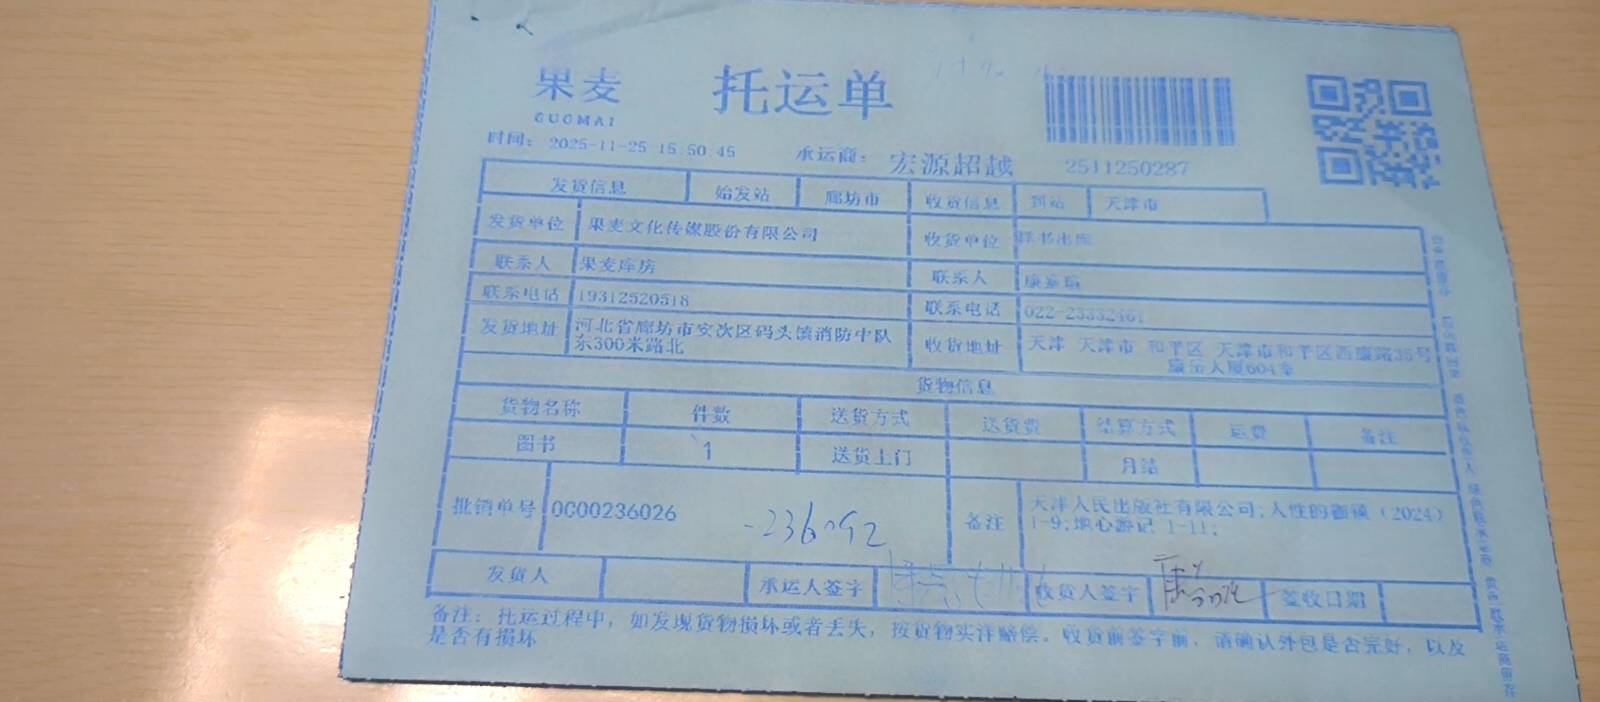 果麦
GUOMAI
托运单
时间： 2025-11-25 15:50:45 承运商： 宏源超越 2511250287
发货信息 始发站 廊坊市 收货信息 到站 天津市
发货单位 果麦文化传媒股份有限公司 收货单位 样书出库
联系人 果麦库房 联系人
联系电话 19312520518 联系电话 022-23332461
发货地址 河北省廊坊市安次区码头镇消防中队
东300米路北
收货地址 天津 天津市 和平区 天津市和平区西康路35号
康岳大厦604室
货物信息
货物名称 件数 送货方式 送货费 结算方式 运费 备注
图书 1 送货上门 月结
批销单号 0C00236026 -236092 备注 天津人民出版社有限公司;人性的
(2024)
1-9;地心游记 1-11;
发货人 承运人签字 收货人签字 签收日期
备注：托运过程中，如发现货物损坏或者丢失，按货物实洋赔偿。收货前签字前，请确认外包是否完好，以及
是否有损坏